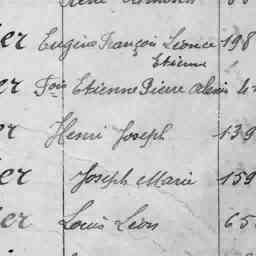 er Eugène François Léonce 198
Etienne
er Fois Etienne Pierre Alexis 4
er Henri Joseph 139
er Joseph Marie 159
er Louis Léon 65